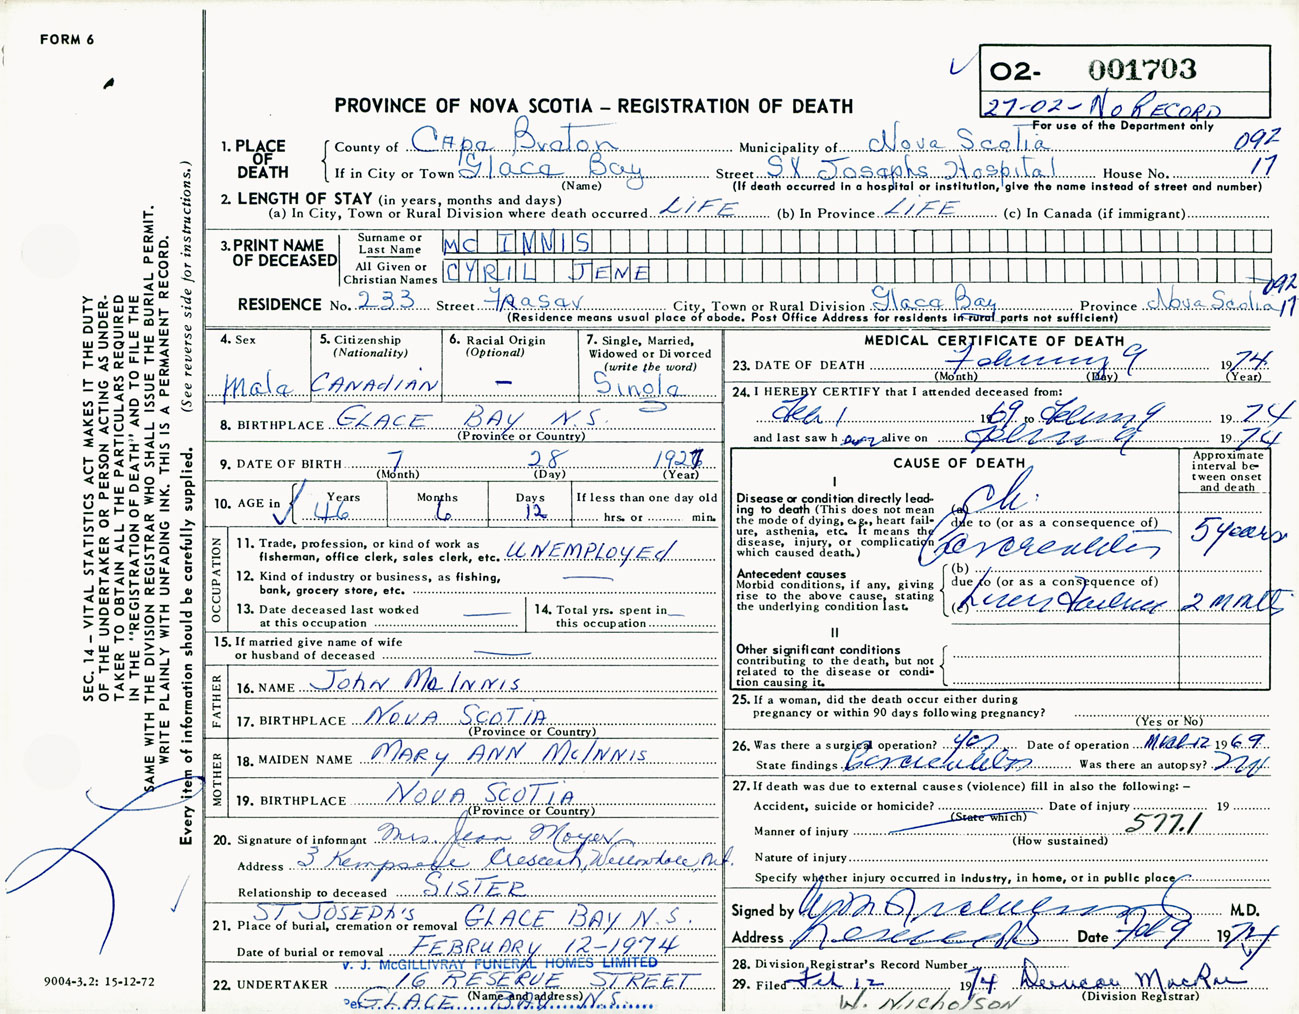 FORM 6
O2- 001703
27-02- No RECORD
For use of the Department only
PROVINCE OF NOVA SCOTIA – REGISTRATION OF DEATH
1. PLACE OF DEATH
County of Cape Breton Municipality of Nova Scotia 092
If in City or Town Glace Bay Street St Josephs Hospital House No. 17
(Name) (If death occurred in a hospital or institution, give the name instead of street and number)
2. LENGTH OF STAY (in years, months and days)
(a) In City, Town or Rural Division where death occurred LIFE (b) In Province LIFE (c) In Canada (if immigrant)
3. PRINT NAME OF DECEASED
Surname or Last Name MC INNIS
All Given or Christian Names CYRIL JENE
092
RESIDENCE No. 233 Street Fraser City, Town or Rural Division Glace Bay Province Nova Scotia 17
(Residence means usual place of abode. Post Office Address for residents in rural parts not sufficient)
4. Sex
Male
5. Citizenship
(Nationality)
CANADIAN
6. Racial Origin
(Optional)
–
7. Single, Married,
Widowed or Divorced
(write the word)
Single
8. BIRTHPLACE GLACE BAY N.S.
(Province or Country)
9. DATE OF BIRTH 7 28 1927
(Month) (Day) (Year)
10. AGE in Years Months Days If less than one day old
46 6 12 hrs. or min.
OCCUPATION
11. Trade, profession, or kind of work as
fisherman, office clerk, sales clerk, etc. UNEMPLOYEd
12. Kind of industry or business, as fishing,
bank, grocery store, etc.
13. Date deceased last worked
at this occupation
14. Total yrs. spent in
this occupation
15. If married give name of wife
or husband of deceased
FATHER
16. NAME John McInnis
17. BIRTHPLACE NOVA SCOTIA
(Province or Country)
MOTHER
18. MAIDEN NAME MARY ANN McINNIS
19. BIRTHPLACE NOVA SCOTIA
(Province or Country)
20. Signature of informant Mrs. Jean Moyer
Address 3 Crescent, Willowdale, Ont.
Relationship to deceased SISTER
21. Place of burial, cremation or removal ST JOSEPH'S GLACE BAY N.S.
Date of burial or removal FEBRUARY 12-1974
V. J. McGILLIVRAY FUNERAL HOMES LIMITED
22. UNDERTAKER 16 RESERVE STREET
(Name and address)
GLACE BAY N.S.
MEDICAL CERTIFICATE OF DEATH
23. DATE OF DEATH February 9 1974
(Month) (Day) (Year)
24. I HEREBY CERTIFY that I attended deceased from:
Feb 1 1969 to February 9 1974
and last saw him alive on 9 1974
CAUSE OF DEATH
Approximate interval between onset and death
I
Disease or condition directly leading to death (This does not mean the mode of dying, e.g., heart failure, asthenia, etc. It means the disease, injury, or complication which caused death.)
(a) Ch.
due to (or as a consequence of)
5 years
Antecedent causes
Morbid conditions, if any, giving rise to the above cause, stating the underlying condition last.
(b)
due to (or as a consequence of)
(c) Liver Failure 2
II
Other significant conditions
contributing to the death, but not related to the disease or condition causing it.
25. If a woman, did the death occur either during
pregnancy or within 90 days following pregnancy?
(Yes or No)
26. Was there a surgical operation? yes Date of operation 12 1969
State findings Was there an autopsy? no
27. If death was due to external causes (violence) fill in also the following: –
Accident, suicide or homicide? Date of injury 19
(State which)
Manner of injury 577.1
(How sustained)
Nature of injury
Specify whether injury occurred in Industry, in home, or in public place
Signed by M.D.
Address Date Feb 9 1974
28. Division Registrar's Record Number
29. Filed Feb 12 1974 Duncan MacRae
(Division Registrar)
W. Nicholson
SEC. 14 – VITAL STATISTICS ACT MAKES IT THE DUTY
OF THE UNDERTAKER OR PERSON ACTING AS UNDER-
TAKER TO OBTAIN ALL THE PARTICULARS REQUIRED
IN THE "REGISTRATION OF DEATH" AND TO FILE THE
SAME WITH THE DIVISION REGISTRAR WHO SHALL ISSUE THE BURIAL PERMIT.
WRITE PLAINLY WITH UNFADING INK. THIS IS A PERMANENT RECORD.
Every item of information should be carefully supplied. (See reverse side for instructions.)
9004-3.2: 15-12-72